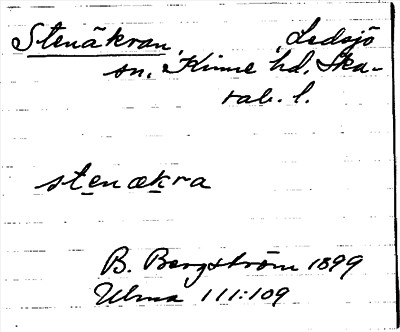 Stenåkran, Ledsjö
sn. Kinne hd. Ska-
rab. l.
stenækra
B. Bergström 1899
Ulma 111:109